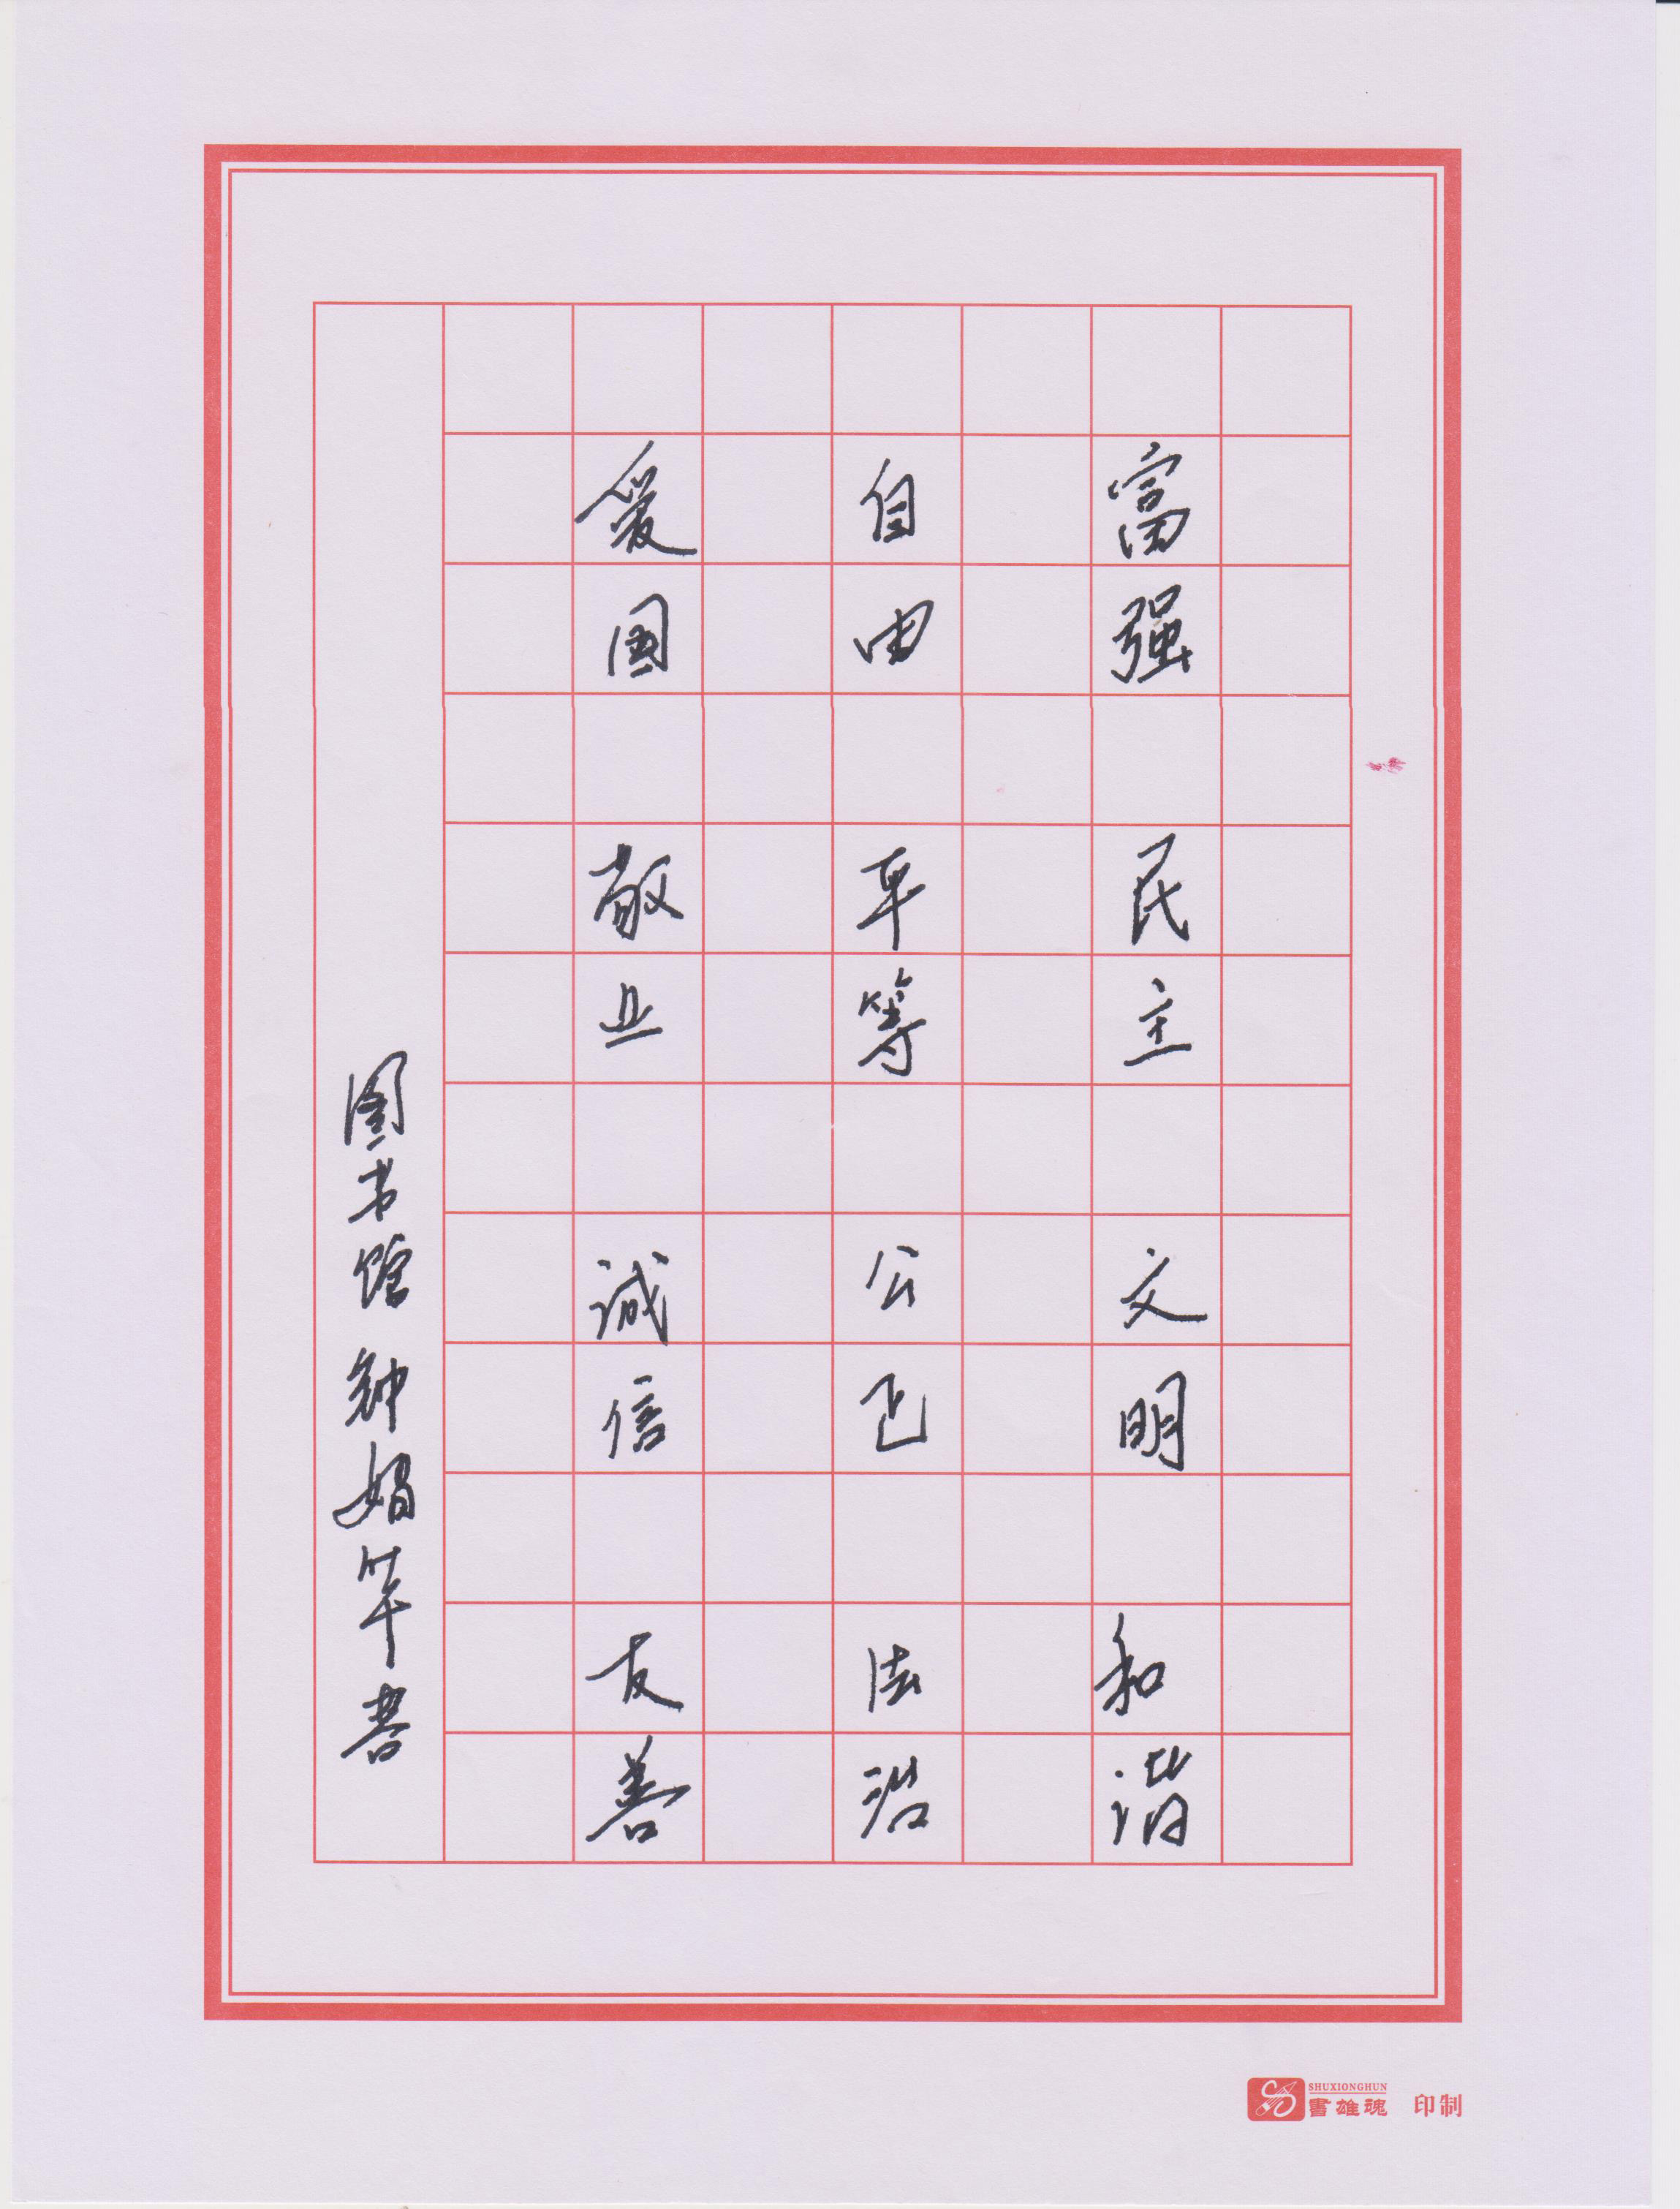 富强 民主 文明 和谐
自由 平等 公正 法治
爱国 敬业 诚信 友善
图书馆 钟娟芊书
SHUXIONGHUN
書雄魂 印制